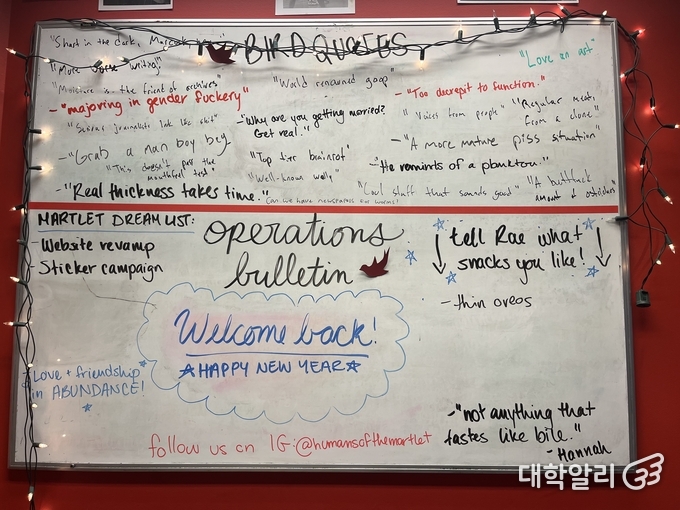 BIRD QUOTES
"Love an art"
"More worse writing"
"Moisture is the friend of archives"
"World renowned goop"
- "Too decrepit to function."
- "majoring in gender fuckery"
- "Why are you getting married?
Get real."
"Voices from people"
"Regular meats
from a clone"
"Serious journalists look like shit"
- "Grab a man boy bey
- "A more mature piss situation"
"This doesn't pass the
mouthfeel test"
"Top tier brainrot"
- "He reminds of a plankton."
"Well-known wally"
- "Real thickness takes time."
"Cool stuff that sounds good"
"A buttfuck
amount of ostriches"
MARTLET DREAM LIST:
- Website revamp
- Sticker campaign
operations
bulletin
tell Rae what
snacks you like!
- thin oreos
Welcome back!
HAPPY NEW YEAR
Love + friendship
in ABUNDANCE!
- "not anything that
tastes like bile."
- Hannah
follow us on IG: @humansofthemartlet
대학알리